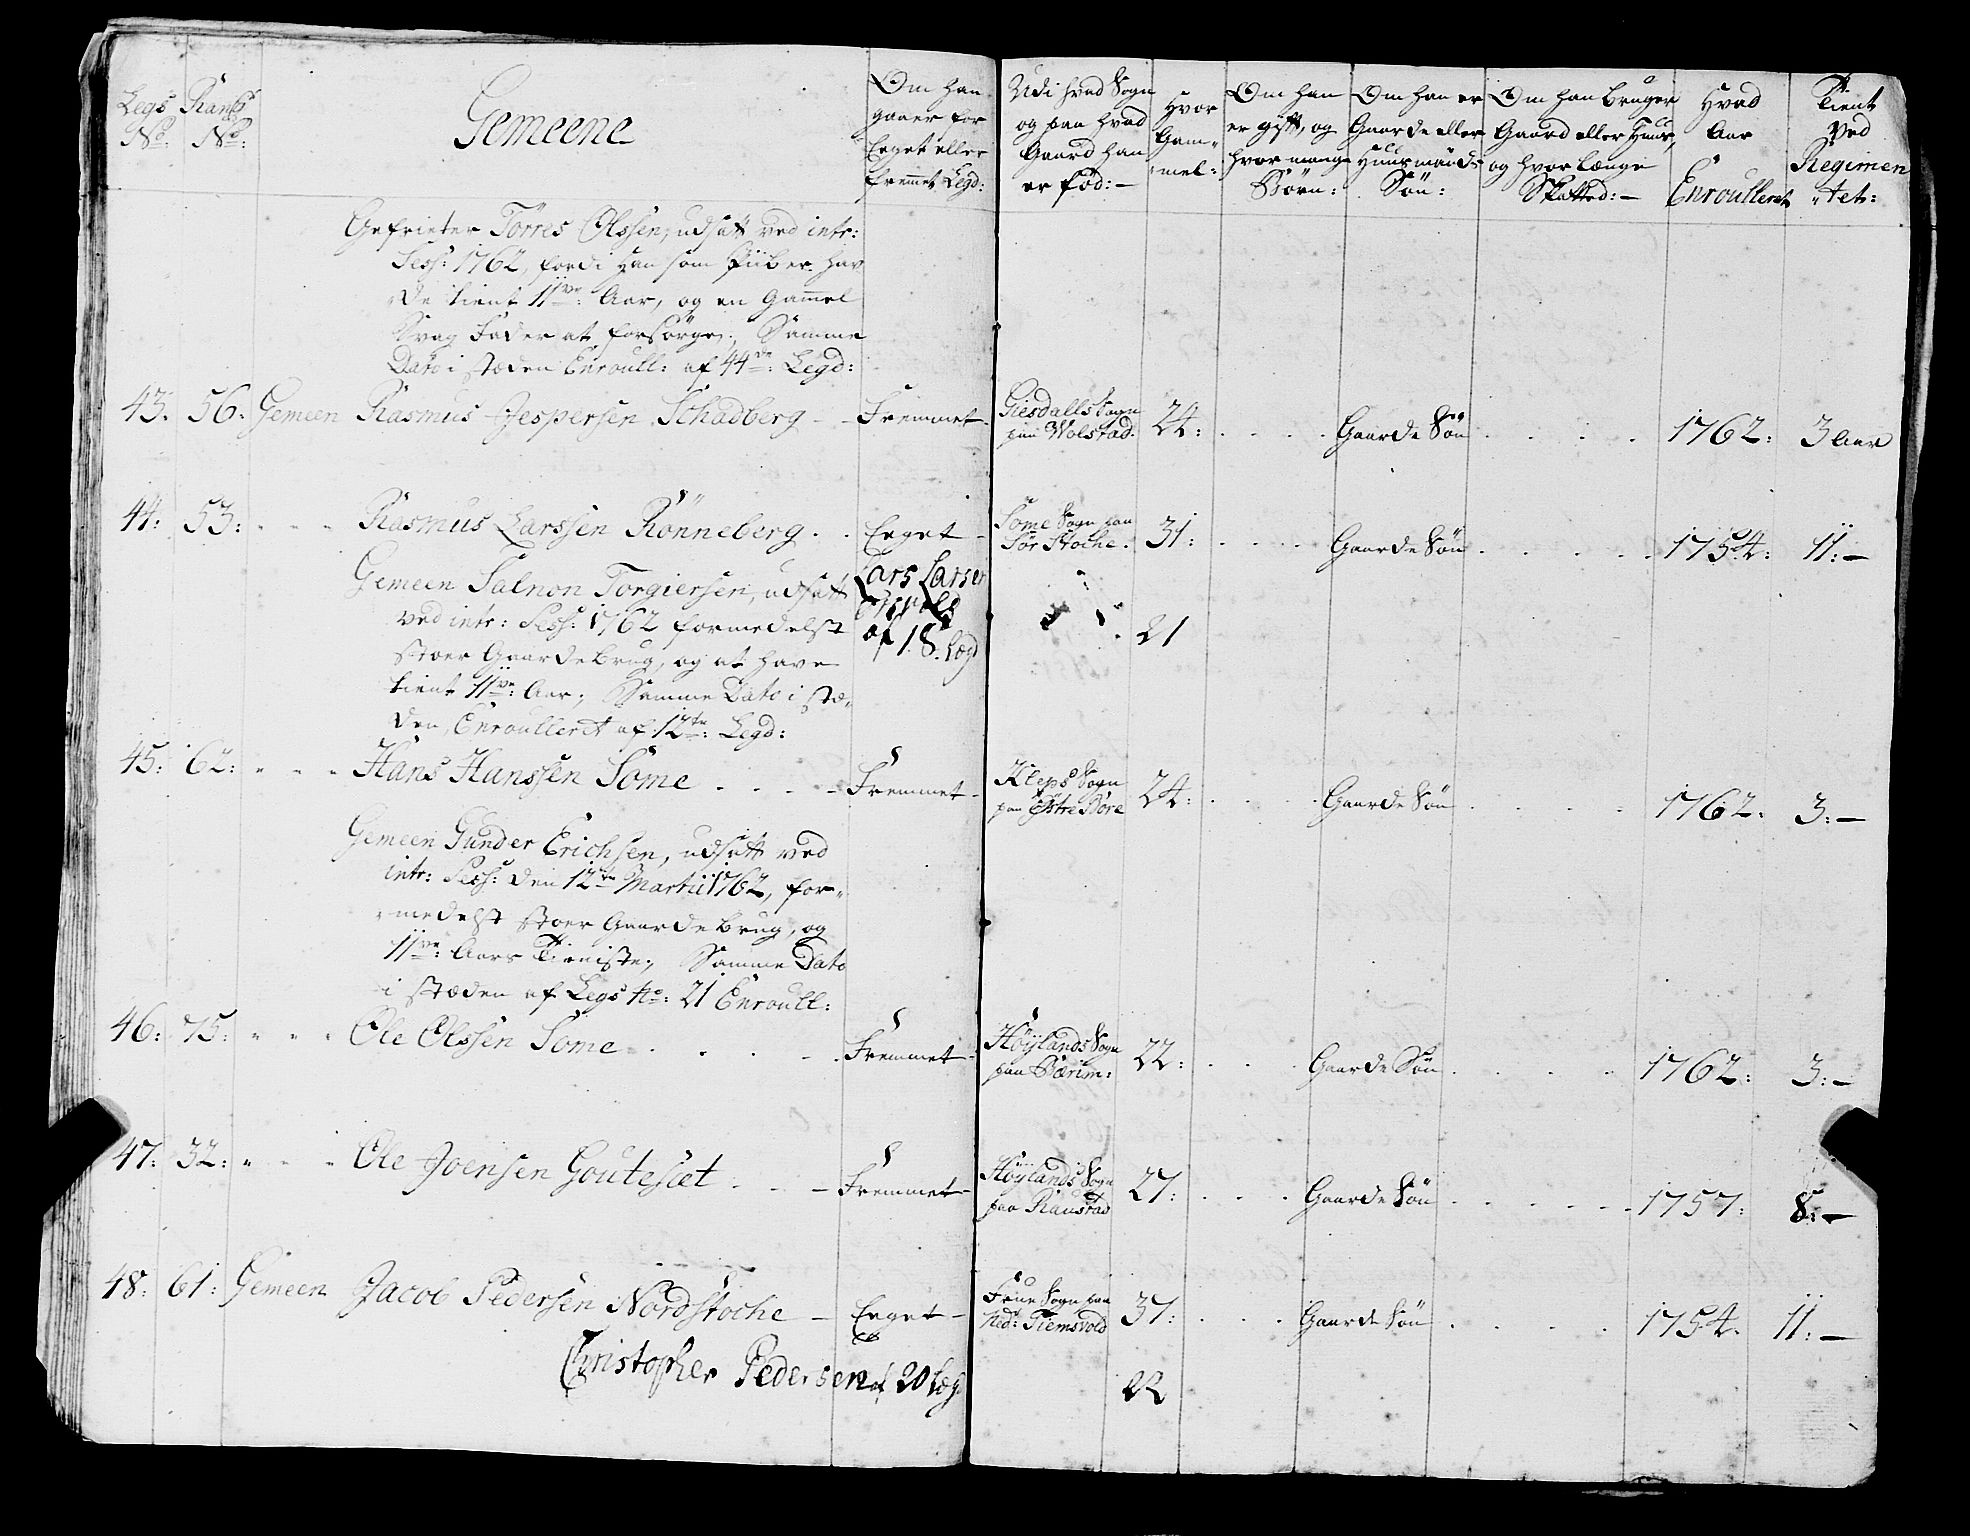 Legs Rangs
No: No:
Gemeene
Om han
gaaer for
Eeget eller
fremet Legd:
Udi hvad Sogn
og paa hvad
Gaard han
er fød:—
Hvor
Gam-
mel:
Om han
er gift, og
hvor mange
Børn:
Om han er
Gaarde eller
Huusmands
Søn:
Om han bruger
Gaard eller Huus,
og hvor længe
Skatted:—
Hvad
Aar
Enroulleret
Tient
Ved
Regimen
tet:
Gefrieter Törres Olssen, udsatt ved intr:
Sess: 1762, fordi han som Piiber hav
de tient 11ve: Aar, og en Gamel
Svag Fader at forsørge; Samme
Dato i stæden Enroull: af 44de: Legd:
43. 56. Gemeen Rasmus Jespersen Schadberg - - Fremmet - Giesdalls Sogn paa Wolstad. 24: . . . . Gaarde Søn . . . . 1762: 3 Aar
44: 53: - - - Rasmus Larssen Rönneberg . . Eeget - Some Sogn paa Sør Stoche. 31: . . . . Gaarde Søn . . . . 1754: 11:—
Gemeen Salnon Torgiersen, udsatt
ved intr: Sess: 1762 formedelst
stoer Gaarde brug, og at have
tient 11ve: Aar; Samme Dato i stæ-
den, Enroulleret af 12te: Legd:
Lars Larsen
af 18. Lægd
21
45: 62: - - - Hans Hanssen Some . . . . - Fremmet - Kleps Sogn paa Østre Bore 24: . . . . Gaarde Søn . . . . 1762. 3:—
Gemeen Gunder Erichsen, udsatt ved
intr: Sess: den 12te Martii 1762, for-
medelst stoer Gaarde brug, og
11ve: Aars Tieniste; Samme Dato
i stæden af Legs No: 21 Enroull:
46: 75: - - - Ole Olssen Some . . . . Fremmet - Høylands Sogn paa Bærim: 22: . . . Gaarde Søn . . . . 1762: 3:—
47: 32: - - - Ole Joensen Goutesæt . . . — Fremmet - Høylands Sogn paa Raustad 27: . . . Gaarde Søn . . . . 1757: 8:—
48: 61: Gemeen Jacob Pedersen Nordstoche — Eeget - Frue Sogn paa Ned: Tiemsvold 37: . . . Gaarde Søn . . . . 1754. 11:—
Christopher Pedersen af 20 læg
22